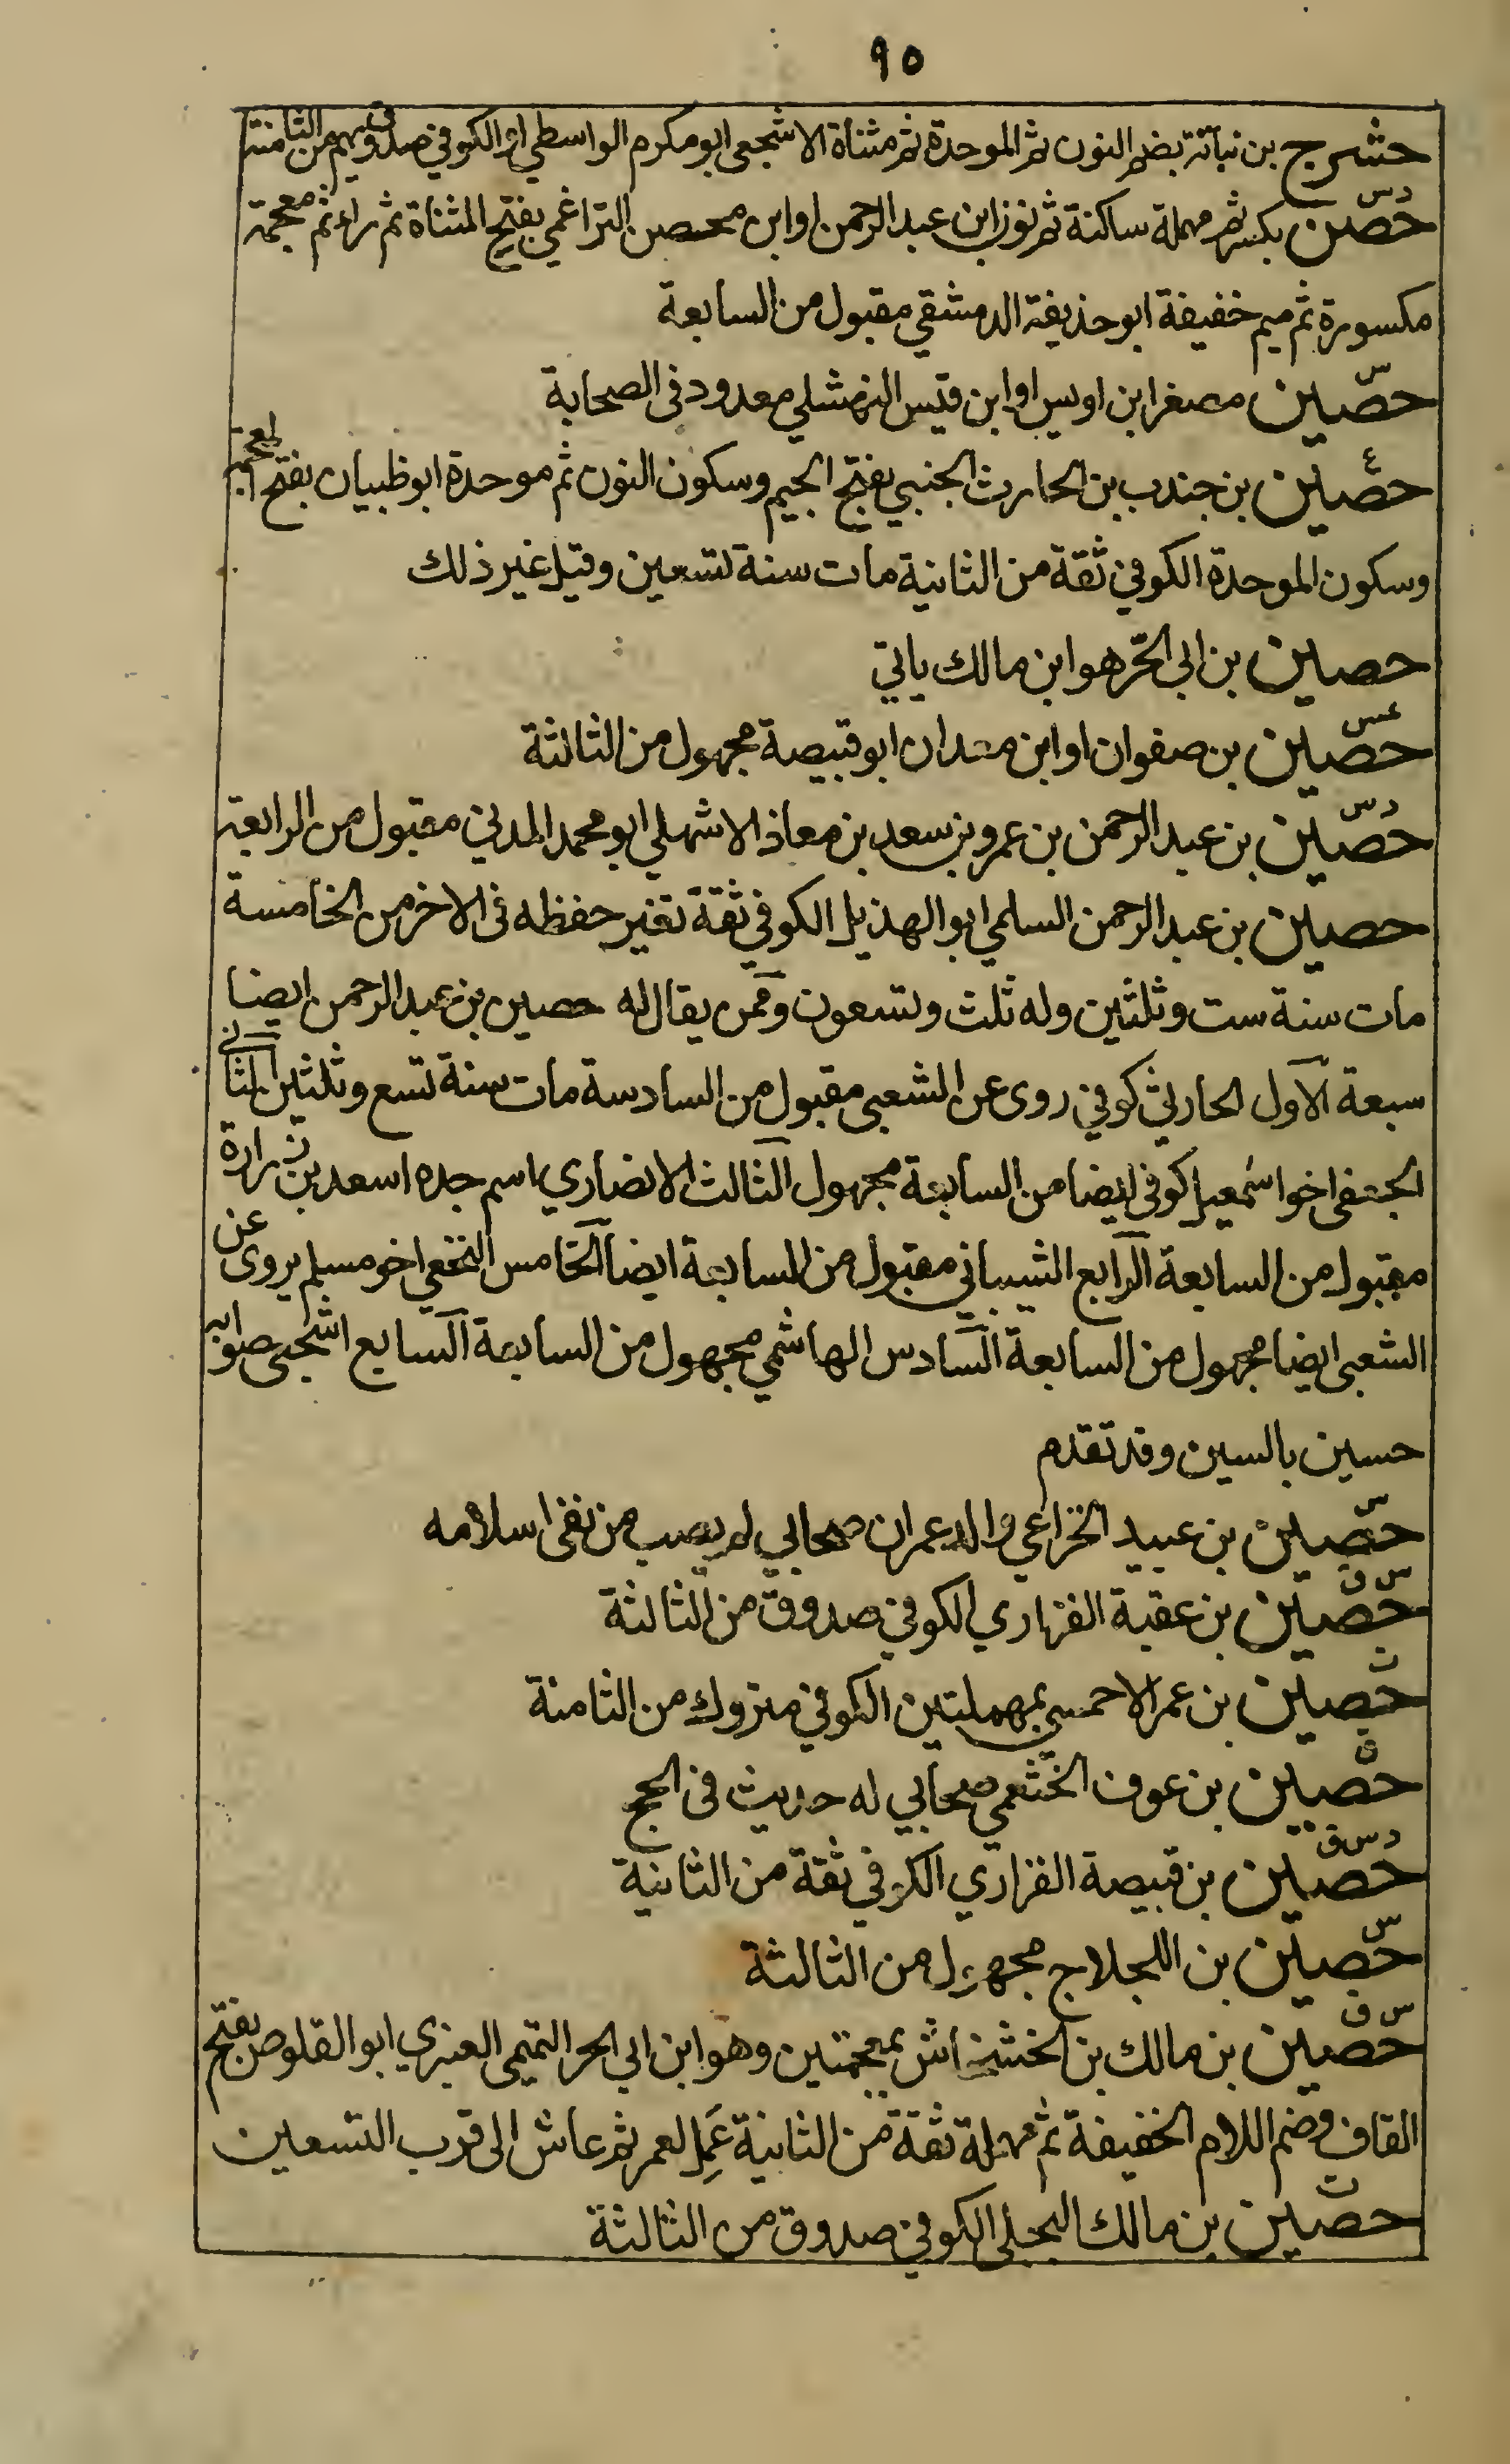 ٩٥
حشرج بن نباتة بضم النون ثم الموحدة ثم مثناة الاشجعي ابو مكرم الواسطي او الكوفي صدوق يهم من الثامنة
دس
حصن بكسر ثم مهملة ساكنة ثم نون ابن عبد الرحمن او ابن محصن التراغمي بفتح المثناة ثم راء ثم معجمة
مكسورة ثم ميم خفيفة ابو حذيفة الدمشقي مقبول من السابعة
س
حصين مصغر ابن اويس او ابن قيس النهشلي معدود في الصحابة
ع
حصين بن جندب بن الحارث الجنبي بفتح الجيم وسكون النون ثم موحدة ابو ظبيان بفتح المعجمة
وسكون الموحدة الكوفي ثقة من الثانية مات سنة تسعين وقيل غير ذلك
حصين بن ابي الحر هو ابن مالك ياتي
عس
حصين بن صفوان او ابن معدان ابو قبيصة مجهول من الثالثة
دس
حصين بن عبد الرحمن بن عمرو بن سعد بن معاذ الاشهلي ابو محمد المدني مقبول من الرابعة
حصين بن عبد الرحمن السلمي ابو الهذيل الكوفي ثقة تغير حفظه في الاخر من الخامسة
مات سنة ست وثلثين وله ثلث وتسعون وممن يقال له حصين بن عبد الرحمن ايضا
سبعة الاول الحارثي كوفي روى عن الشعبي مقبول من السادسة مات سنة تسع وثلثين الثاني
الجعفي اخو اسمعيل كوفي ايضا من السابعة مجهول الثالث الانصاري اسم جده اسعد بن زرارة
مقبول من السابعة الرابع الشيباني مقبول من السابعة ايضا الخامس النخعي اخو مسلم يروى عن
الشعبي ايضا مجهول من السابعة السادس الهاشمي مجهول من السابعة السابع اشجعي صوابه
حسين بالسين وقد تقدم
س
حصين بن عبيد الخزاعي والد عمران صحابي لم يصب من نفى اسلامه
س ق
حصين بن عقبة الفزاري الكوفي صدوق من الثالثة
ت
حصين بن عمر الاحمسي بمهملتين الكوفي متروك من الثامنة
ق
حصين بن عوف الخثعمي صحابي له حديث في الحج
دسق
حصين بن قبيصة الفزاري الكوفي ثقة من الثانية
س
حصين بن اللجلاج مجهول من الثالثة
س ق
حصين بن مالك بن الخشخاش بمعجمتين وهو ابن ابي الحر التميمي العنبري ابو القلوص بفتح
القاف وضم اللام الخفيفة ثم مهملة ثقة من الثانية عمل لعمر ثم عاش الى قرب التسعين
ت
حصين بن مالك البجلي الكوفي صدوق من الثالثة